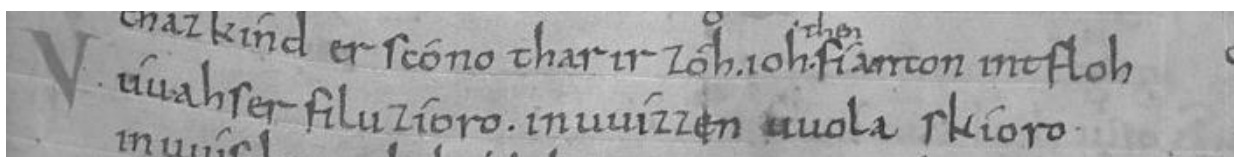 thaz kínd er scóno thar ir zôh. ioh. then fíanton intfloh
V úuahser filu zíoro. inuuízzen uuola skíoro.